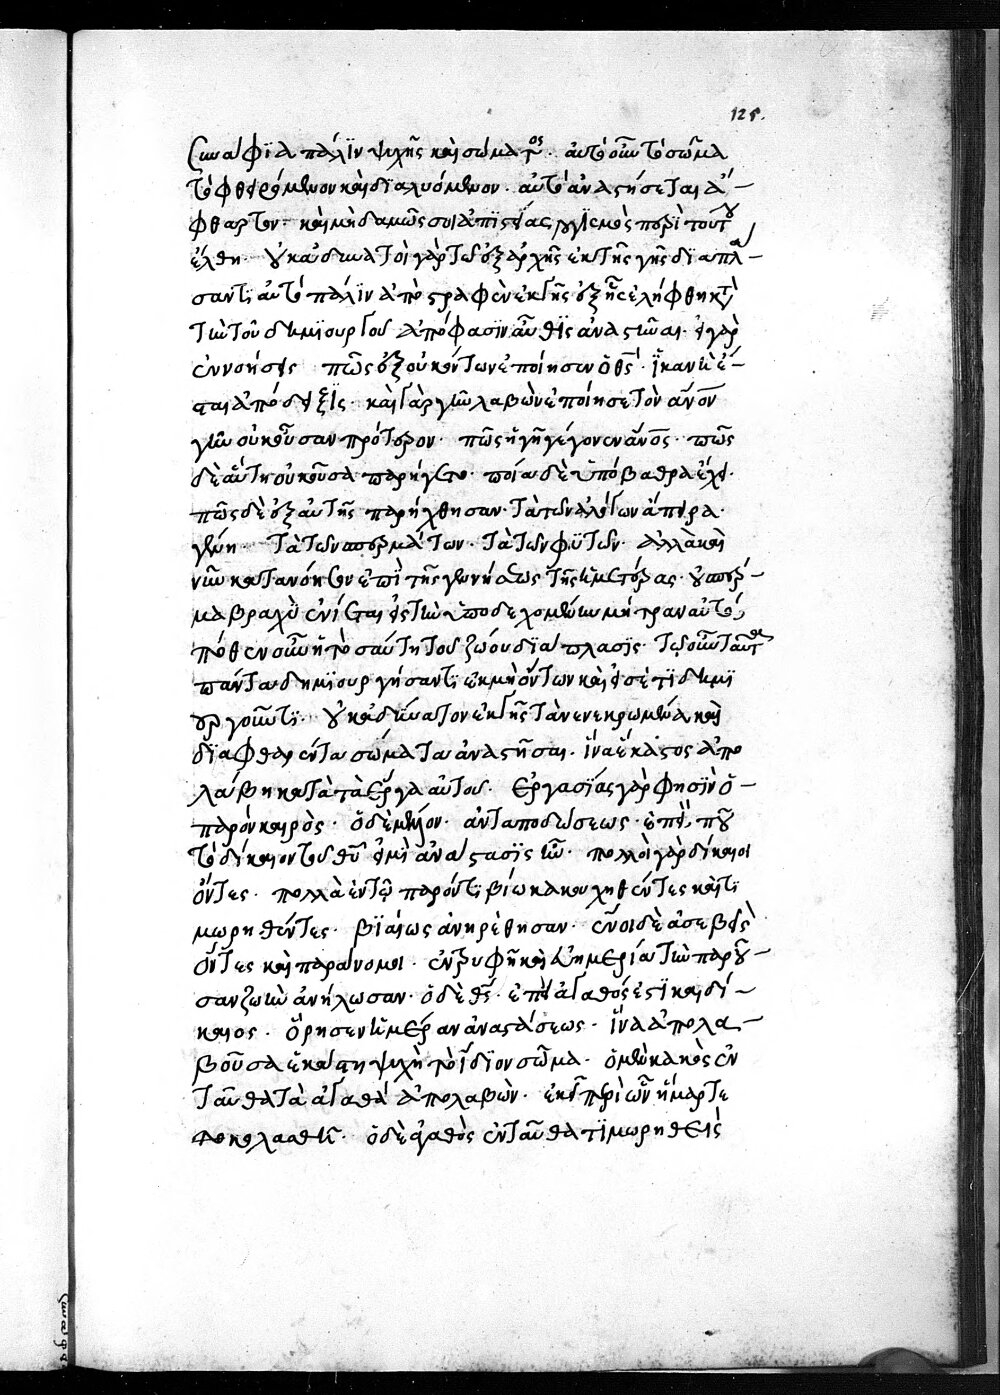 125.
συνάφϊα πάλϊν ψυχῆς καὶ σώματος. αὐτὸ οὖν τὸ σῶμα
τὸ φθειρόμενον καὶ διαλυόμενον. αὐτὸ ἀναστήσεται ἄ-
φθαρτον. καὶ μηδαμῶς σοι ἀπϊστίας λογϊσμὸς περὶ τούτου
ἔλθη. οὐκ ἀδυνατοὶ γὰρ τῶ ἐξ ἀρχῆς ἐκ τῆς γῆς διαπλά-
σαντι αὐτὸ πάλϊν ἀποστραφὲν ἐκ γῆς ἐξ ἧς ἐλήφθη κατὰ
τὴν τοῦ δημϊουργοῦ ἀπόφασιν αὖθϊς ἀναστῆναι. εἰ γὰρ
ἐννοήσεις πῶς ἐξ οὐκ ὄντων ἐποίησεν ὁ θς. ἱκανὴ ἔ-
σται ἀπόδειξϊς. καὶ γὰρ γῆν λαβὼν ἐποίησε τὸν ἄνον
γῆν οὐκ οὖσαν πρότερον. πῶς ἡ γῆ γέγονεν ἄνος. πῶς
δὲ αὕτη οὐκ οὖσα παρήγετο. ποία δὲ ὑπόβαθρα ἔχει.
πῶς δὲ ἐξ αὐτῆς παρήχθησαν. τὰ τῶν ἀλόγων ἄπειρα
γένη. τὰ τῶν σπερμάτων. τὰ τῶν φϋτῶν. ἀλλὰ καὶ
νῦν κατανόησον ἐπὶ τῆς γεννήσεως τῆς ἡμετέρας. οὐ σπέρ-
μα βραχὺ ἐνίεται εἰς τὴν ὑποδεχομένην μήτραν αὐτό;
πόθεν οὖν ἡ τοσαύτη τοῦ ζώου διάπλασϊς. τῷ οὖν ταῦτα
πάντα δημϊουργήσαντι ἐκ μὴ ὄντων καὶ εἰσέτϊ δημϊ
ουργοῦντϊ. οὐκ ἀδύνατον ἐκ γῆς τὰ νενεκρωμένα καὶ
δϊαφθαρέντα σώματα ἀναστῆσαι. ἵνα ἕκαστος ἀπο
λάβη κατὰ τὰ ἔργα αὐτοῦ. ἐργασίας γὰρ φησϊν ὁ
παρὼν καιρὸς. ὁ δὲ μέλλων. ἀνταποδώσεως. ἐπεὶ, ποῦ
τὸ δίκαιον τοῦ θυ εἰ μὴ ἀνάστασϊς ἦν. πολλοὶ γὰρ δίκαιοι
ὄντες. πολλὰ ἐν τῶ παρόντι βίω κακουχηθέντες καὶ τι
μωρηθέντες. βϊαίως ἀνηρέθησαν. ἔνοι δὲ ἀσεβεῖς
ὄντες καὶ παράνομοι. ἐν τρυφῆ καὶ εὐημερία τὴν παροῦ-
σαν ζωὴν ἀνήλωσαν. ὁ δὲ θς. ἐπεὶ ἀγαθός ἐστϊ καὶ δί-
καιος. ὥρησεν ἡμέραν ἀναστάσεως. ἵνα ἀπολα-
βοῦσα ἑκάστη ψυχὴ τὸ ἴδϊον σῶμα. ὁ μὲν κακὸς ἐν
ταῦθα τὰ ἀγαθὰ ἀπολαβὼν. ἐκεῖ περὶ ὧν ἥμαρτε
κολασθῆ. ὁ δὲ ἀγαθὸς ἐνταῦθα τϊμωρηθεὶς